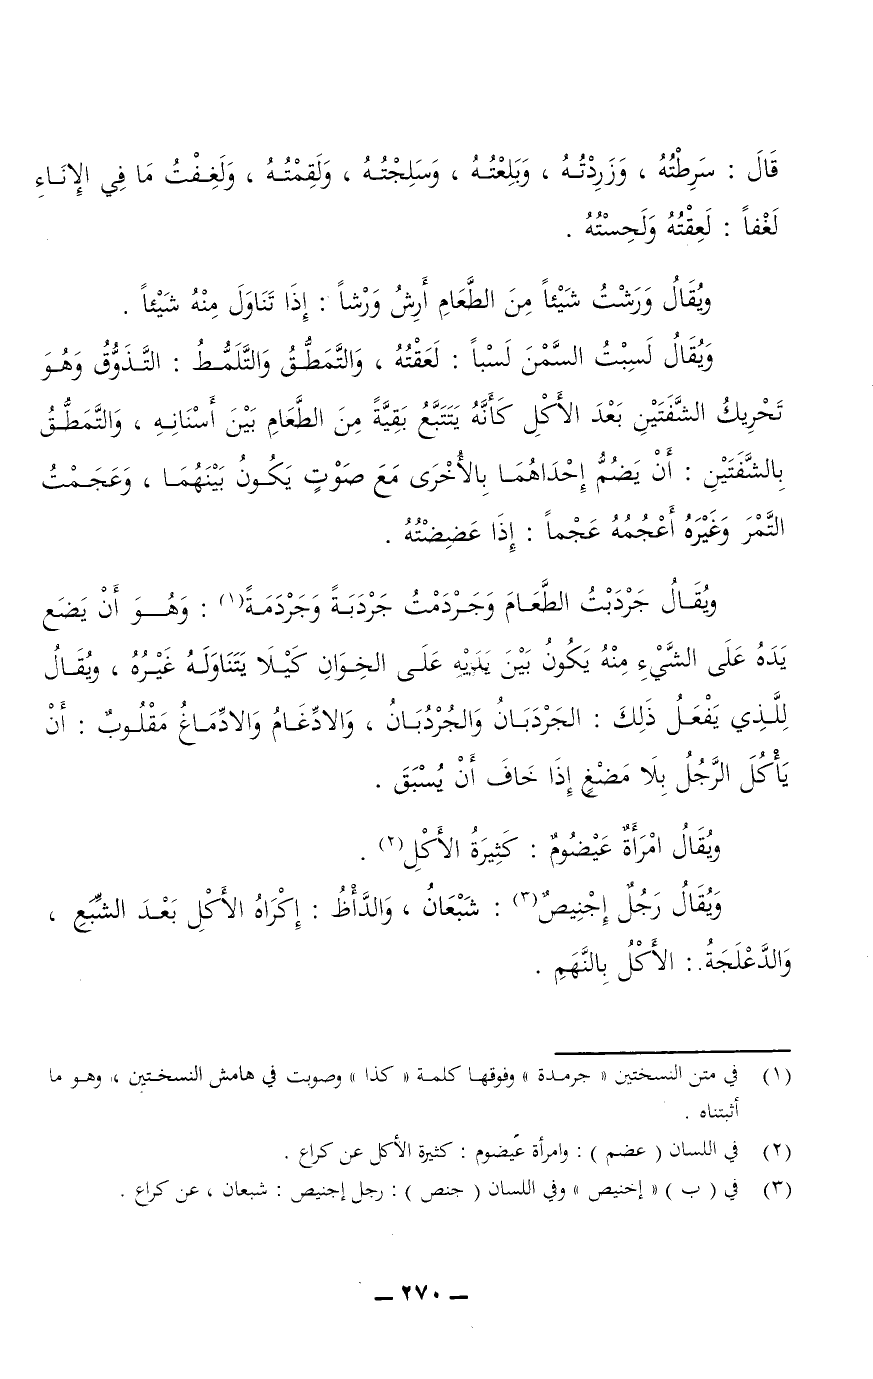 قَالَ : سَرِطْتُهُ ، وَزَرِدْتُـهُ ، وَبَلِعْتُـهُ ، وَسَلِجْتُـهُ ، وَلَقِمْتُـهُ ، وَلَغِـفْتُ مَا فِي الإِنَـاءِ
لَغْفاً : لَعِقْتُهُ وَلَحِسْتُهُ .
ويُقَالُ وَرَشْتُ شَيْئاً مِنَ الطَّعَامِ أَرِشُ وَرْشاً : إِذَا تَنَاوَلَ مِنْهُ شَيْئاً .
وَيُقَالُ لَسِبْتُ السَّمْنَ لَسْباً : لَعَقْتُهُ ، وَالتَّمَطُّقُ وَالتَّلَمُّظُ : التَّذَوُّقُ وَهُوَ
تَحْرِيكُ الشَّفَتَيْنِ بَعْدَ الأَكْلِ كَأَنَّهُ يَتَتَبَّعُ بَقِيَّةً مِنَ الطَّعَامِ بَيْنَ أَسْنَانِهِ ، وَالتَّمَطُّقُ
بِالشَّفَتَيْنِ : أَنْ يَضُمَّ إِحْدَاهُمَا بِالأُخْرَى مَعَ صَوْتٍ يَكُونُ بَيْنَهُمَا ، وَعَجَمْتُ
التَّمْرَ وَغَيْرَهُ أَعْجُمُهُ عَجْماً : إِذَا عَضِضْتُهُ .
ويُقَـالُ جَرْدَبْتُ الطَّعَامَ وَجَـرْدَمْتُ جَرْدَبَةً وَجَرْدَمَةً(١) : وَهُـوَ أَنْ يَضَع
يَدَهُ عَلَى الشَّيْءِ مِنْهُ يَكُونُ بَيْنَ يَدَيْهِ عَلَـى الخِوَانِ كَيْـلَا يَتَنَاوَلَـهُ غَيْرُهُ ، ويُقَـالُ
لِلَّذِي يَفْعَلُ ذَلِكَ : الجَرْدَبَانُ وَالجُرْدُبَانُ ، وَالادِّغَامُ وَالادِّمَاغُ مَقْلُوبٌ : أَنْ
يَأْكُلَ الرَّجُلُ بِلَا مَضْغٍ إِذَا خَافَ أَنْ يُسْبَقَ .
ويُقَالُ امْرَأَةٌ عَيْضُومٌ : كَثِيرَةُ الأَكْلِ(٢) .
وَيُقَالُ رَجُلٌ إِجْنِيصٌ(٣) : شَبْعَانُ ، وَالدَّأْظُ : إِكْرَاهُ الأَكْلِ بَعْدَ الشِّبَعِ ،
وَالدَّعْلَجَةُ : الأَكْلُ بِالنَّهَمِ .
(١) في متن النسختين « جرمدة » وفوقها كلمة « كذا » وصوبت في هامش النسختين ، وهو ما
أثبتناه .
(٢) في اللسان ( عضم ) : وامرأة عَيضوم : كثيرة الأكل عن كراع .
(٣) في ( ب ) « إخنيص » وفي اللسان ( جنص ) : رجل إجنيص : شبعان ، عن كراع .
— ٢٧٠ —